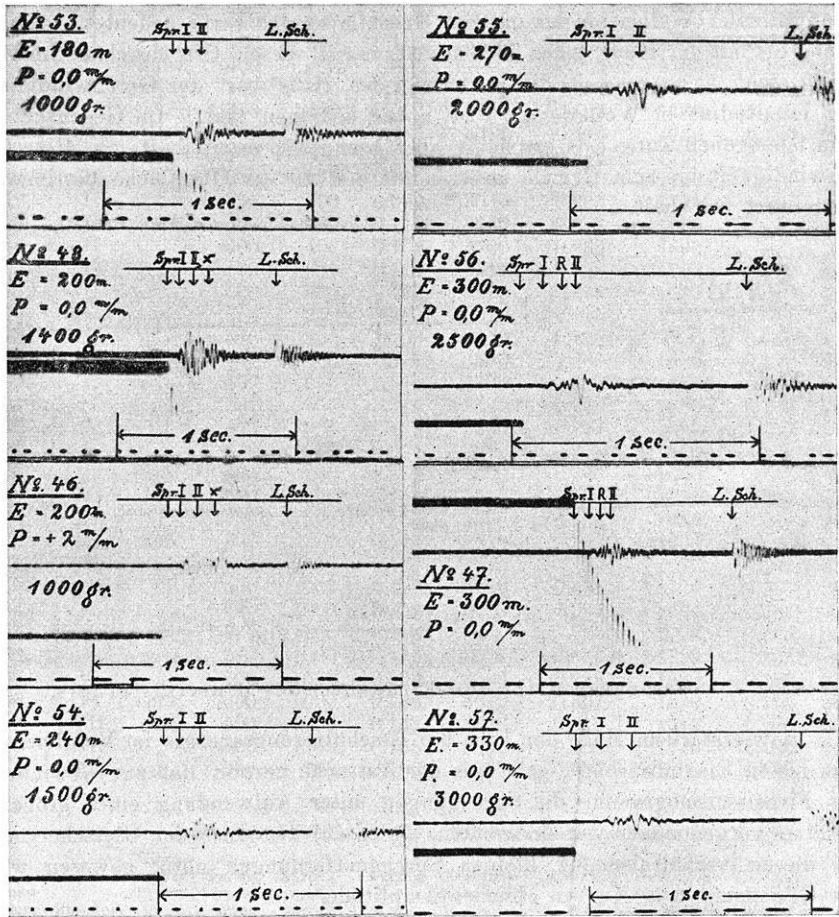 № 53.
E = 180 m
P = 0,0 m/m
1000 gr.
Spr. I II L. Sch.
1 sec.
№ 48.
E = 200 m.
P = 0,0 m/m
1400 gr.
Spr. I II x L. Sch.
1 sec.
№ 46.
E = 200 m.
P = + 2 m/m
1000 gr.
Spr. I II x L. Sch.
1 sec.
№ 54.
E = 240 m
P = 0,0 m/m
1500 gr.
Spr. I II L. Sch.
1 sec.
№ 55.
E = 270 m.
P = 0,0 m/m
2000 gr.
Spr. I II L. Sch.
1 sec.
№ 56.
E = 300 m.
P = 0,0 m/m
2500 gr.
Spr. I R II L. Sch.
1 sec.
Spr. I R II L. Sch.
№ 47.
E = 300 m.
P = 0,0 m/m
1 sec.
№ 57.
E. = 330 m.
P. = 0,0 m/m
3000 gr.
Spr. I II L. Sch.
1 sec.